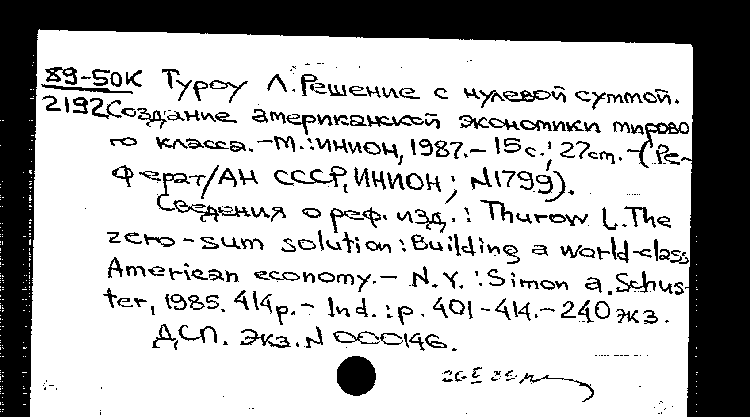 89-50К Туроу Л. Решение с нулевой суммой.
2192 Создание американской экономики мирово
го класса. -М.: ИНИОН, 1987. - 15 с.; 27 cm. - (Ре-
ферат/АН СССР, ИНИОН; N1799).
Сведения о реф. изд.: Thurow L. The
zero-sum solution: Building a world-class
American economy. - N.Y.: Simon a. Schus-
ter, 1985. 414 p. - Ind.: p. 401-414. - 240 экз.
ДСП. Экз. N 000146.